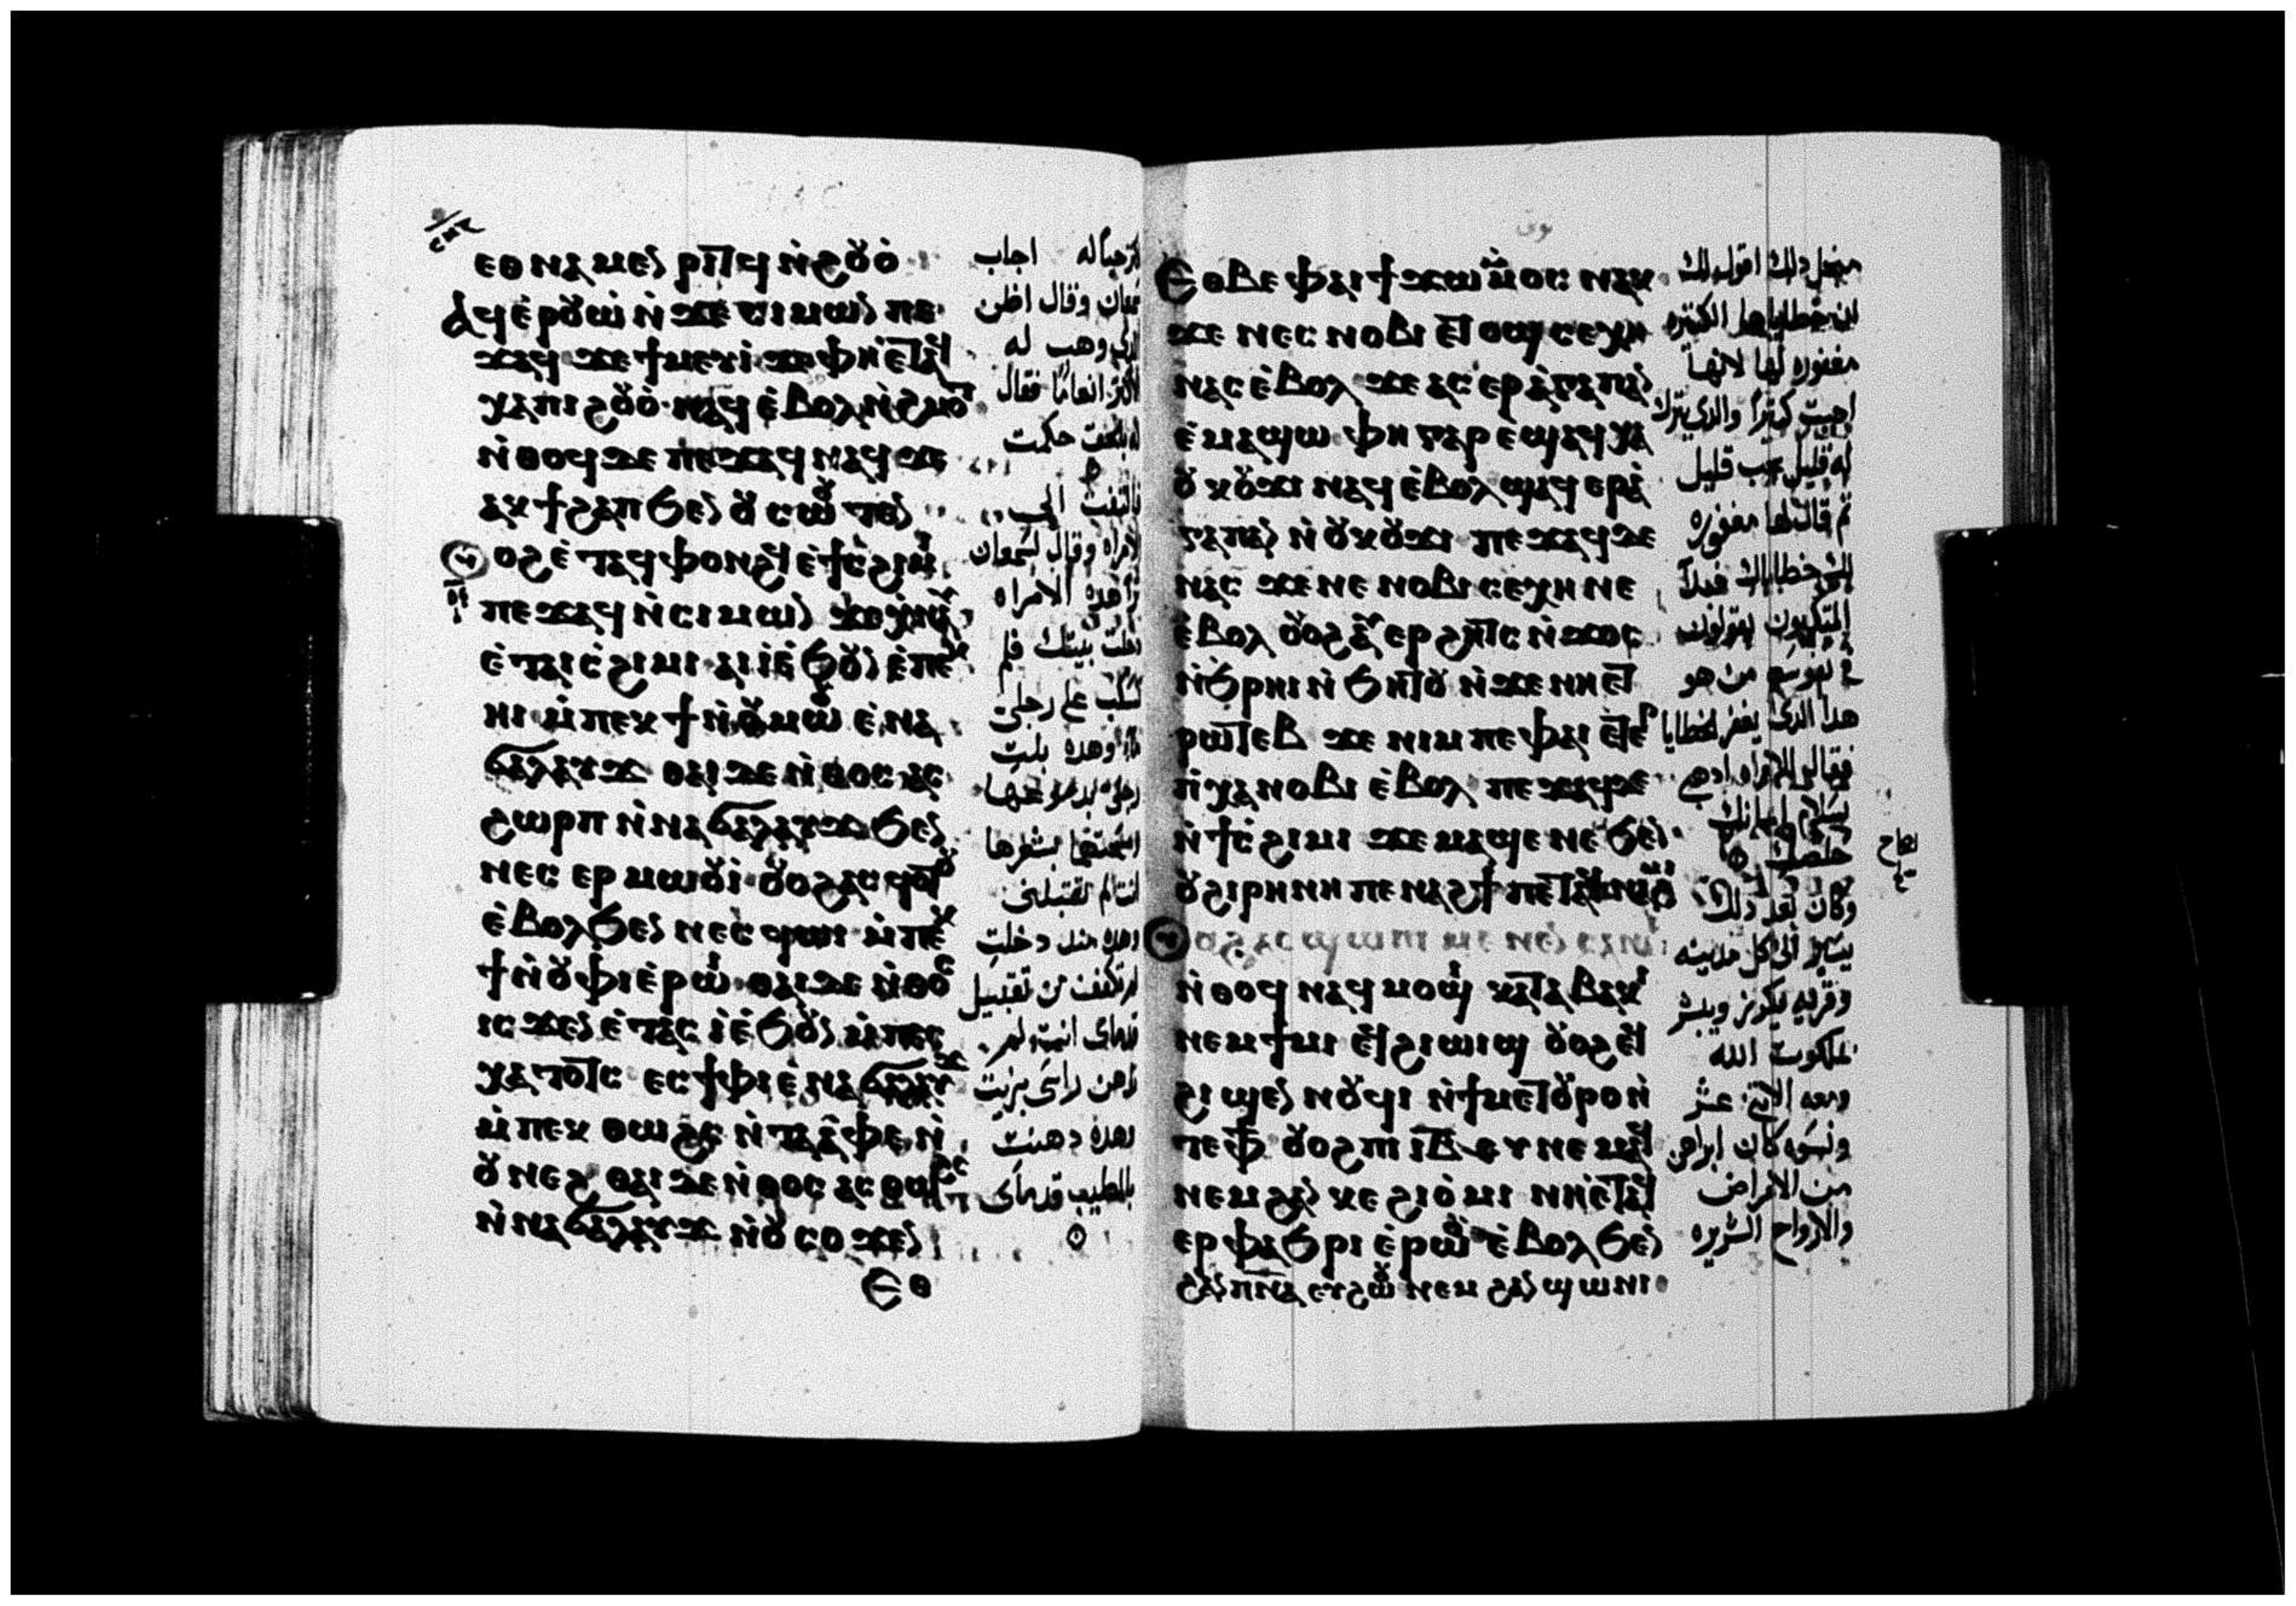 ⲉⲑⲛⲁⲙⲉⲛⲣⲓⲧϥ ⲛ̀ϩⲟⲩⲟ̀
ⲁϥⲉ̀ⲣⲟⲩⲱ̀ ⲛ̀ϫⲉ ⲥⲓⲙⲱⲛ ⲡⲉ
ϫⲁϥ ϫⲉ ϯⲙⲉⲩⲓ̀ ϫⲉ ⲫⲏⲉ̀ⲧⲁϥ
ⲭⲁ ⲡⲓϩⲟⲩⲟ̀ ⲛⲁϥ ⲉ̀ⲃⲟⲗ ⲛ̀ϩⲙⲟⲧ
ⲛ̀ⲑⲟϥ ⲇⲉ ⲡⲉϫⲁϥ ⲛⲁϥ ϫⲉ
ⲁⲕϯϩⲁⲡ ϧⲉⲛ ⲟⲩⲥⲱⲟⲩⲧⲉⲛ
ⲟⲩⲟϩ ⲉ̀ⲧⲁϥⲫⲟⲛϩϥ ⲉ̀ϯⲥ̀ϩⲓⲙⲓ
ⲡⲉϫⲁϥ ⲛ̀ⲥⲓⲙⲱⲛ ϫⲉ ⲭ̀ⲛⲁⲩ
ⲉ̀ⲧⲁⲓⲥ̀ϩⲓⲙⲓ ⲁⲓⲓ̀ ⲉ̀ϧⲟⲩⲛ ⲉ̀ⲡⲉⲕ
ⲏⲓ ⲙ̀ⲡⲉⲕϯ ⲛ̀ⲟⲩⲙⲱⲟⲩ ⲉ̀ⲛⲁ
ϭⲁⲗⲁⲩϫ ⲑⲁⲓ ⲇⲉ ⲛ̀ⲑⲟⲥ ⲁⲥ
ϩⲱⲣⲡ ⲛ̀ⲛⲁϭⲁⲗⲁⲩϫ ϧⲉⲛ
ⲛⲉⲥⲉⲣⲙⲱⲟⲩⲓ̀ ⲟⲩⲟϩ ⲁⲥϥⲟⲧⲟⲩ
ⲉ̀ⲃⲟⲗ ϧⲉⲛ ⲛⲉⲥϥⲱⲓ ⲙ̀ⲡⲉⲕ
ϯ ⲛ̀ⲟⲩⲫⲓ ⲉ̀ⲣⲱⲓ ⲑⲁⲓ ⲇⲉ ⲛ̀ⲑⲟⲥ
ⲓⲥϫⲉⲛ ⲉ̀ⲧⲁⲥⲓ̀ ⲉ̀ϧⲟⲩⲛ ⲙ̀ⲡⲉⲥ
ⲭⲁⲧⲟⲧⲥ ⲉⲥϯⲫⲓ ⲉ̀ⲛⲁϭⲁⲗⲁⲩϫ
ⲙ̀ⲡⲉⲕⲑⲱϩⲥ ⲛ̀ⲧⲁⲁ̀ⲫⲉ ⲛ̀
ⲟⲩⲛⲉϩ ⲑⲁⲓ ⲇⲉ ⲛ̀ⲑⲟⲥ ⲁⲥⲑⲱϩⲥ
ⲛ̀ⲛⲁϭⲁⲗⲁⲩϫ ⲛ̀ⲟⲩⲥⲟϫⲉⲛ
ⲉⲑ
اجاب
وقال اظن
وهب له
انعاما فقال
حكمت
فالتفت الى
الامراه وقال لسمعان
هذه الامراه
دخلت بيتك فلم
تسكب على رجلي
ماء وهذه بلت
انت لم تقبلني
وهذه منذ دخلت
لم تكفف من تقبيل
قدماي انت لم
تدهن راسي بزيت
وهذه دهنت
بالطيب قدماي
ⲉⲑⲃⲉ ⲫⲁⲓ ϯϫⲱ ⲙ̀ⲙⲟⲥ ⲛⲁⲕ
ϫⲉ ⲛⲉⲥⲛⲟⲃⲓ ⲉⲧⲟϣ ⲥⲉⲭⲏ
ⲛⲁⲥ ⲉ̀ⲃⲟⲗ ϫⲉ ⲁⲥⲉⲣⲁ̀ⲅⲁⲡⲁⲛ
ⲉ̀ⲙⲁϣⲱ ⲫⲏ ⲅⲁⲣ ⲉ̀ϣⲁϥⲭⲁ
ⲟⲩⲕⲟⲩϫⲓ ⲛⲁϥ ⲉ̀ⲃⲟⲗ ϣⲁϥⲉⲣⲁ̀
ⲅⲁⲡⲁⲛ ⲛ̀ⲟⲩⲕⲟⲩϫⲓ ⲡⲉϫⲁϥ ⲇⲉ
ⲛⲁⲥ ϫⲉ ⲛⲉⲛⲟⲃⲓ ⲥⲉⲭⲏ ⲛⲉ
ⲉ̀ⲃⲟⲗ ⲟⲩⲟϩ ⲁⲩⲉⲣϩⲏⲧⲥ ⲛ̀ϫⲟⲥ
ⲛ̀ϧⲣⲏⲓ ⲛ̀ϧⲏⲧⲟⲩ ⲛ̀ϫⲉ ⲛⲏⲉⲧ
ⲣⲱⲧⲉⲃ ϫⲉ ⲛⲓⲙ ⲡⲉ ⲫⲁⲓ ⲉⲧⲉⲣ
ⲡⲕⲭⲁ ⲛⲟⲃⲓ ⲉ̀ⲃⲟⲗ ⲡⲉϫⲁϥ ⲇⲉ
ⲛ̀ϯⲥ̀ϩⲓⲙⲓ ϫⲉ ⲙⲁϣⲉ ⲛⲉ ϧⲉⲛ
ⲟⲩϩⲓⲣⲏⲛⲏ ⲡⲉⲛⲁϩϯ ⲡⲉⲧⲁϥⲛⲁϩⲙⲓ
ⲟⲩⲟϩ ⲁⲥϣⲱⲡⲓ ⲙⲉⲛⲉⲛⲥⲱⲥ
ⲛ̀ⲑⲟϥ ⲛⲁϥⲙⲟϣⲓ ⲕⲁⲧⲁ ⲃⲁⲕⲓ
ⲛⲉⲙ ϯⲙⲓ ⲉϥϩⲓⲱⲓϣ ⲟⲩⲟϩ ⲉϥ
ϩⲓϣⲉⲛⲛⲟⲩϥⲓ ⲛ̀ϯⲙⲉⲧⲟⲩⲣⲟ ⲛ̀
ⲧⲉ ⲫϯ ⲟⲩⲟϩ ⲡⲓⲓⲃ ⲉⲩⲛⲉⲙⲁϥ
ⲛⲉⲙ ϩⲁⲛⲕⲉϩⲓⲟ̀ⲙⲓ ⲛⲏⲉ̀ⲧⲁϥ
ⲉⲣⲫⲁϧⲣⲓ ⲉ̀ⲣⲱⲟⲩ ⲉ̀ⲃⲟⲗ ϧⲉⲛ
ϩⲁⲛⲡⲛⲁ ⲉⲩϩⲱⲟⲩ ⲛⲉⲙ ϩⲁⲛϣⲱⲛⲓ
من اجل ذلك اقول لك
ان خطاياها الكثيره
مغفوره لها لانها
احبت كثيرا والذي يترك
له قليل يحب قليل
ثم قال لها مغفوره
لك خطاياك فبدا
المتكيون يقولون
في نفوسهم من هو
هذا الذي يغفر الخطايا
فقال للامراه اذهبي
بسلام ايمانك
خلصك
وكان بعد ذلك
يسير الى كل مدينه
وقريه يكرز ويبشر
بملكوت الله
ومعه الاثني عشر
ونسوه كان ابراهن
من الامراض
والارواح الشريره